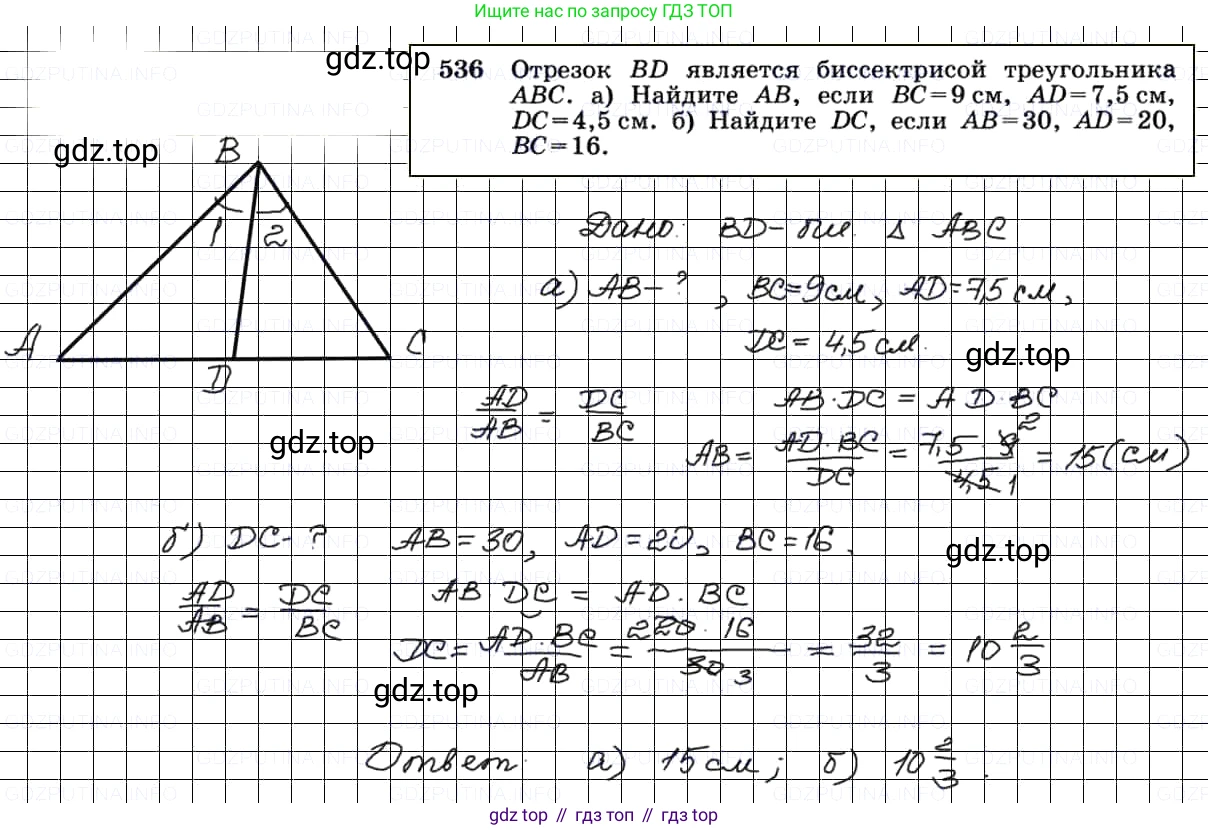 Ищите нас по запросу ГДЗ ТОП
gdz.top
536 Отрезок BD является биссектрисой треугольника
ABC. а) Найдите AB, если BC=9 см, AD=7,5 см,
DC=4,5 см. б) Найдите DC, если AB=30, AD=20,
BC=16.
gdz.top
B
1 2
A
D
C
Дано: BD – бис. Δ ABC
а) AB – ? , BC=9см, AD=7,5 см,
DC = 4,5 см.
gdz.top
AD/AB = DC/BC
AB·DC = AD·BC
gdz.top
AB = AD·BC/DC = 7,5·9 2/4,5 1 = 15(см)
б) DC-? AB=30, AD=20, BC=16.
gdz.top
AD/AB = DC/BC
AB DC = AD·BC
DC = AD·BC/AB = 2 20·16/30 3 = 32/3 = 10 2/3
gdz.top
Ответ: а) 15 см; б) 10 2/3.
gdz top // гдз топ // gdz top
GDZPUTINA.INFO